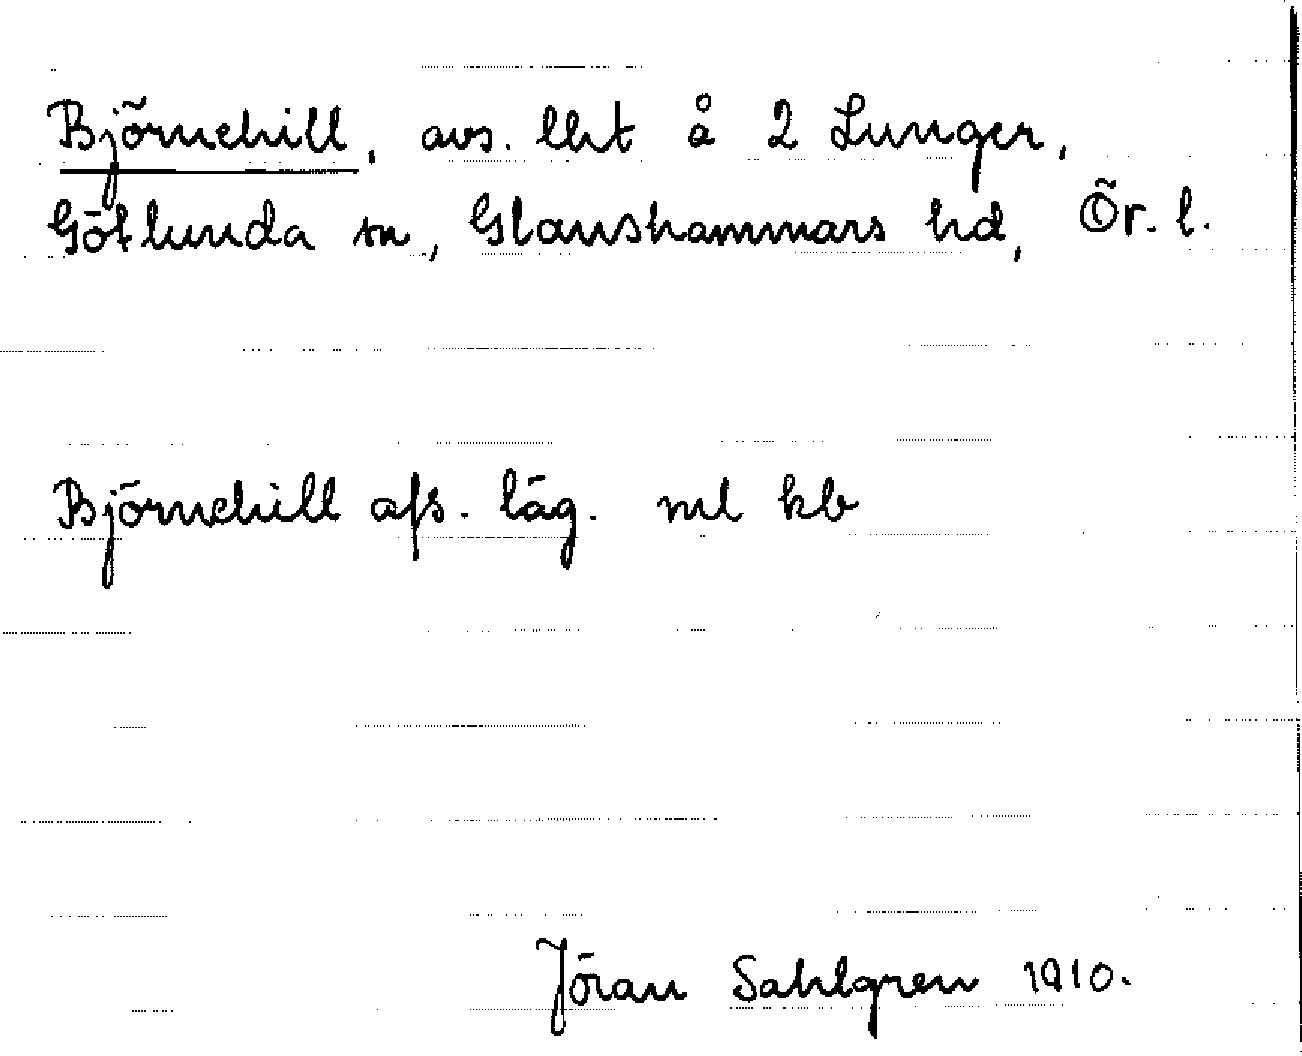 Björnehill, avs. lht å 2 Lunger,
Götlunda sn, Glanshammars hd, Ör. l.
Björnehill afs. läg. ml kb
Jöran Sahlgren 1910.